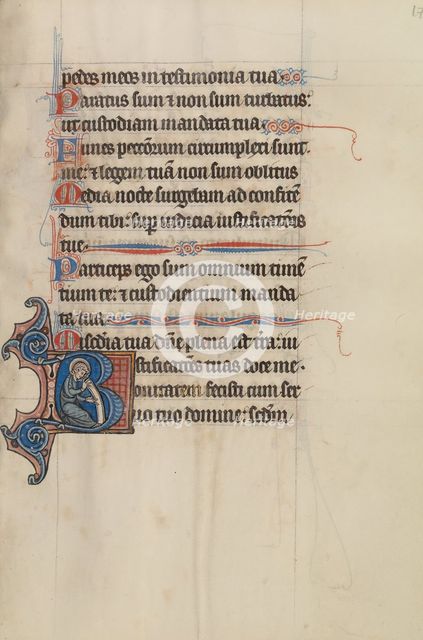 17
pedes meos in testimonia tua.
Paratus sum ⁊ non sum turbatus:
ut custodiam mandata tua.
Funes pccōrum circumplexi sunt
me: ⁊ legem tuā non sum oblitus
Media nocte surgebam ad confitē
dum tibi: sup iudicia iustificatōnis
tue.
Particeps ego sum omnium timē
tium te: ⁊ custodientium manda
ta tua.
Mīscdia tua dn̄e plena est tr̄a: iu
stificatōnes tuas doce me.
Bonitatem fecisti cum ser
uo tuo domine: scdm̄
Heritage
Heritage
Heritage
Heritage
Heritage
Heritage